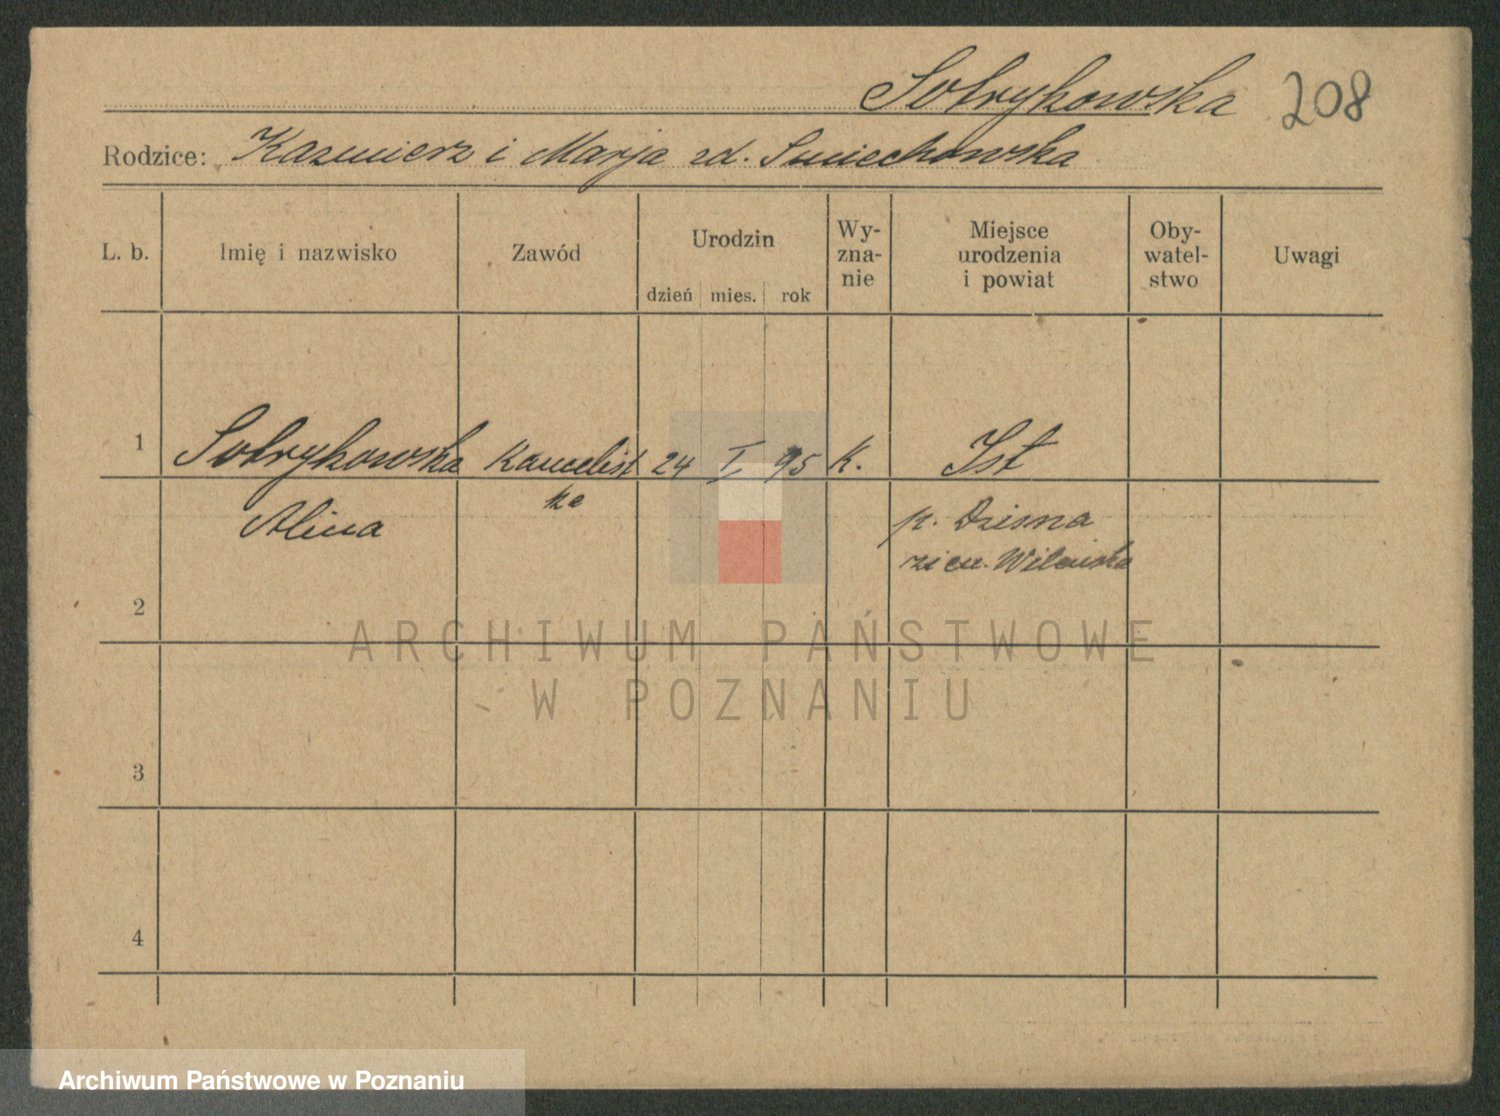 Sobrykowska 208
Rodzice: Kazmierz i Marja zd. Smiechowska
L. b. Imię i nazwisko Zawód Urodzin dzień mies. rok Wy-zna-nie Miejsce urodzenia i powiat Oby-watel-stwo Uwagi
1 Sobrykowska Kancelist 24 I. 95 K. Ist
Alina ka p. Dzisna
ziem. Wileńska
2
3
4
ARCHIWUM PAŃSTWOWE
W POZNANIU
Archiwum Państwowe w Poznaniu